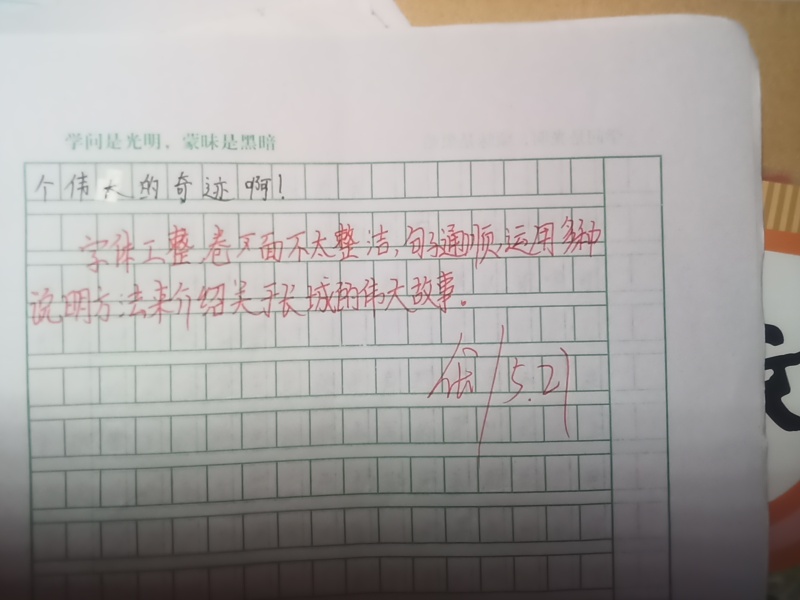 学问是光明，蒙昧是黑暗
个伟大的奇迹啊！
字体工整卷页面不太整洁，句子通顺，运用多种
说明方法来介绍关于长城的伟大故事。
优 5.21